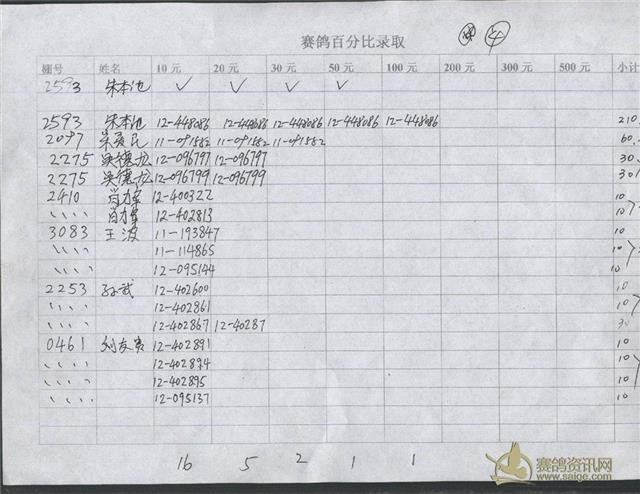 赛鸽百分比录取 ④
棚号 姓名 10元 20元 30元 50元 100元 200元 300元 500元 小计
2593 朱本池 ✓ ✓ ✓ ✓
2593 朱本池 12-448086 12-448086 12-448086 12-448086 12-448086 210
2097 11-091582 11-091582 11-091582 60
2275 吴德龙 12-096797 12-096797 30
2275 吴德龙 12-096799 12-096799 30
2410 肖力军 12-400322 10
〃 肖力军 12-402813 10
3083 王波 11-193847 10
〃 11-114865 10
〃 12-095144 10
2253 孙武 12-402600 10
〃 12-402861 10
〃 12-402867 12-40287 30
0461 刘友 12-402891 10
〃 12-402894 10
〃 12-402895 10
〃 12-095137 10
16 5 2 1 1
赛鸽资讯网
www.saige.com